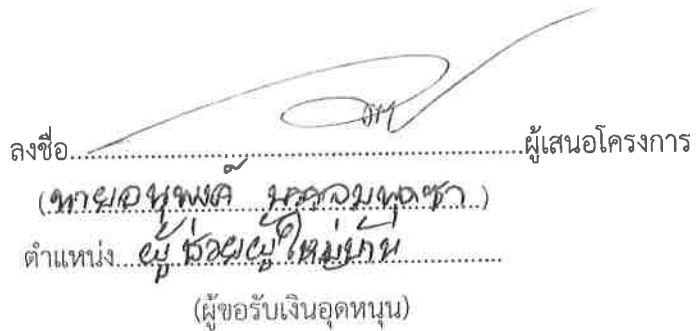 ลงชื่อ..........ผู้เสนอโครงการ
(นายอนุพงค์)
ตำแหน่ง ผู้ช่วยผู้ใหญ่บ้าน
(ผู้ขอรับเงินอุดหนุน)